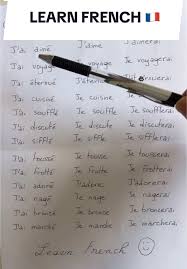 LEARN FRENCH 🇫🇷
J'ai aimé J'aime J'aimerai
J'ai voyagé Je voyage Je voyagerai
J'ai éternué J'éternuerai
J'ai cuisiné Je cuisine Je cuisinerai
J'ai soufflé Je souffle Je soufflerai
J'ai discuté Je discute Je discuterai
J'ai sifflé Je siffle Je sifflerai
J'ai toussé Je tousse Je tousserai
J'ai frotté Je frotte Je frotterai
J'ai adoré J'adore J'adorerai
J'ai nagé Je nage Je nagerai
J'ai bronzé Je bronze Je bronzerai
J'ai marché Je marche Je marcherai
Learn french